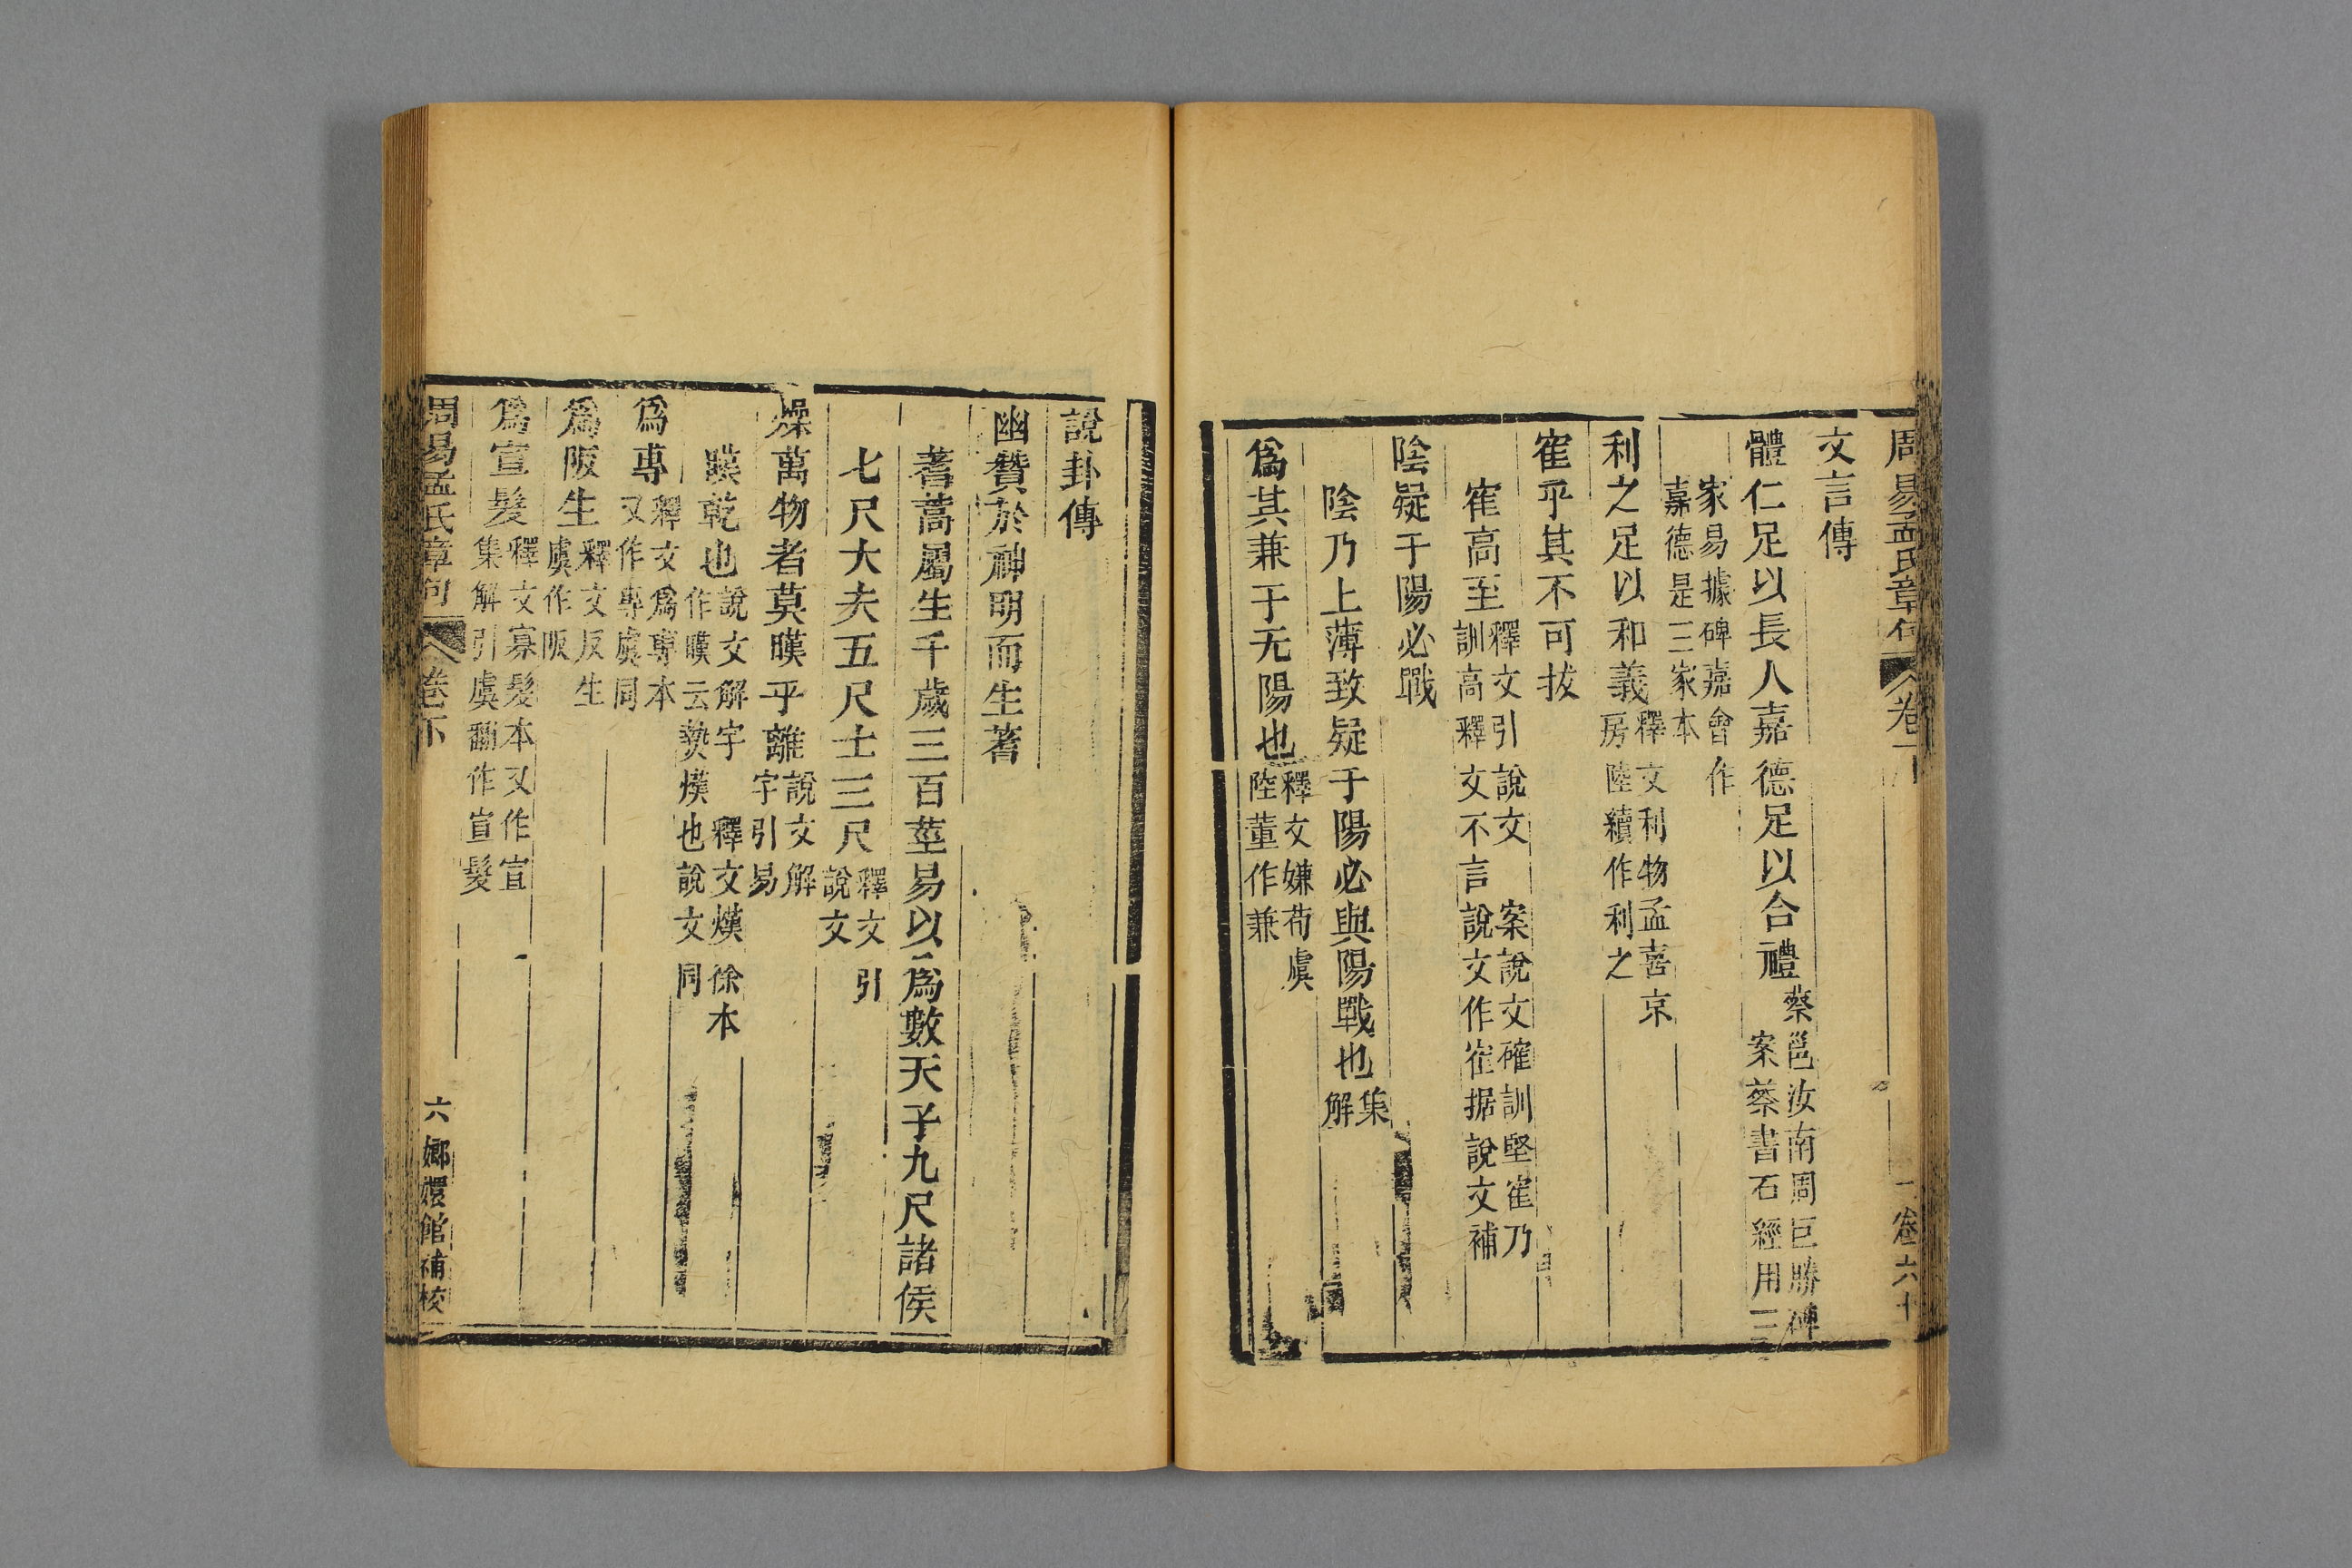 周易孟氏章句 卷下
文言傳
體仁足以長人嘉德足以合禮蔡邕汝南周巨勝碑
案蔡書石經用三
家易據碑嘉會作
嘉德是三家本
利之足以和義釋文利物孟喜京
房陸績作利之
寉乎其不可拔
寉高至釋文引說文 案說文確訓堅寉乃
訓高釋文不言說文作寉据說文補
陰疑于陽必戰
陰乃上薄致疑于陽必與陽戰也集
解
爲其兼于无陽也釋文嫌荀虞
陸董作兼
說卦傳
幽贊於神明而生蓍
蓍蒿屬生千歲三百莖易以爲數天子九尺諸侯
七尺大夫五尺士三尺釋文引
說文
燥萬物者莫暵乎離說文解
字引易
暵乾也說文解字 釋文熯徐本
作暵云熱熯也說文同
爲專釋文爲專本
又作專虞同
爲阪生釋文反生
虞作阪
爲宣髮釋文寡髮本又作宣
集解引虞翻作宣髮
周易孟氏章句 卷下 六 嫏嬛館補校